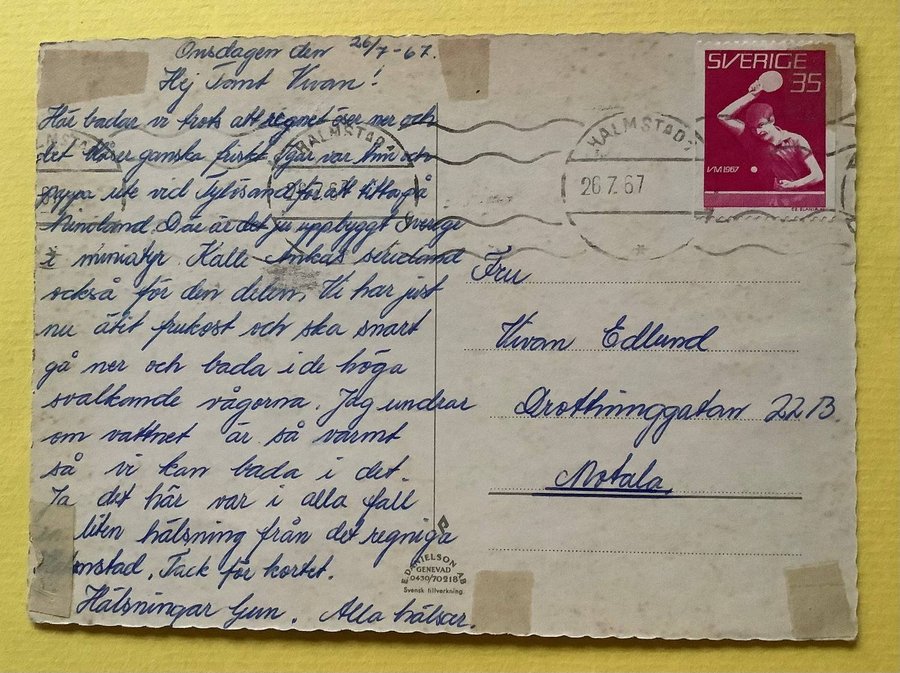 Onsdagen den 26/7-67.
Hej Tant Vivan!
Här badar vi trots att regnet öser ner och
det blåser ganska friskt. Igår var vi och
pappa ute vid Tylösand för att titta på
Miniland. Där är det ju uppbyggt Sverige
i miniatyr. Kalle Ankas serieland
också för den delen. Vi har just
nu ätit frukost och ska snart
gå ner och bada i de höga
svalkande vågorna. Jag undrar
om vattnet är så varmt
så vi kan bada i det.
Ja det här var i alla fall
liten hälsning från det regniga
mstad. Tack för kortet.
Hälsningar Gun. Alla hälsar.
SVERIGE
35
VM 1967
HALMSTAD
26.7.67
HALMSTAD
26.7.67
Fru
Vivan Edlund
Drottninggatan 22B
Motala
E. DANIELSON AB
GENEVAD
0430/70218
Svensk tillverkning